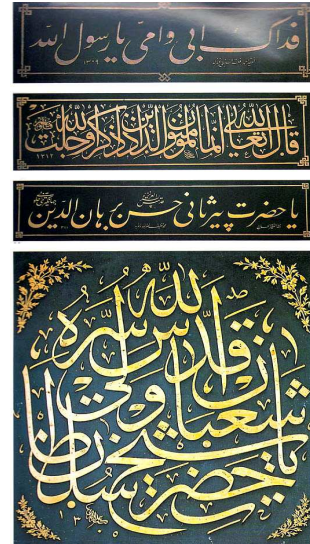 فداك ابی وامی یا رسول الله
١٣٠٩
قال الله تعالى انما المؤمنون الذين اذا ذكر الله وجلت
١٣١٢
يا حضرت پیر ثانی حسن برهان الدین
يا حضرت سلطان شيخ شعبان ولى قدس الله سره